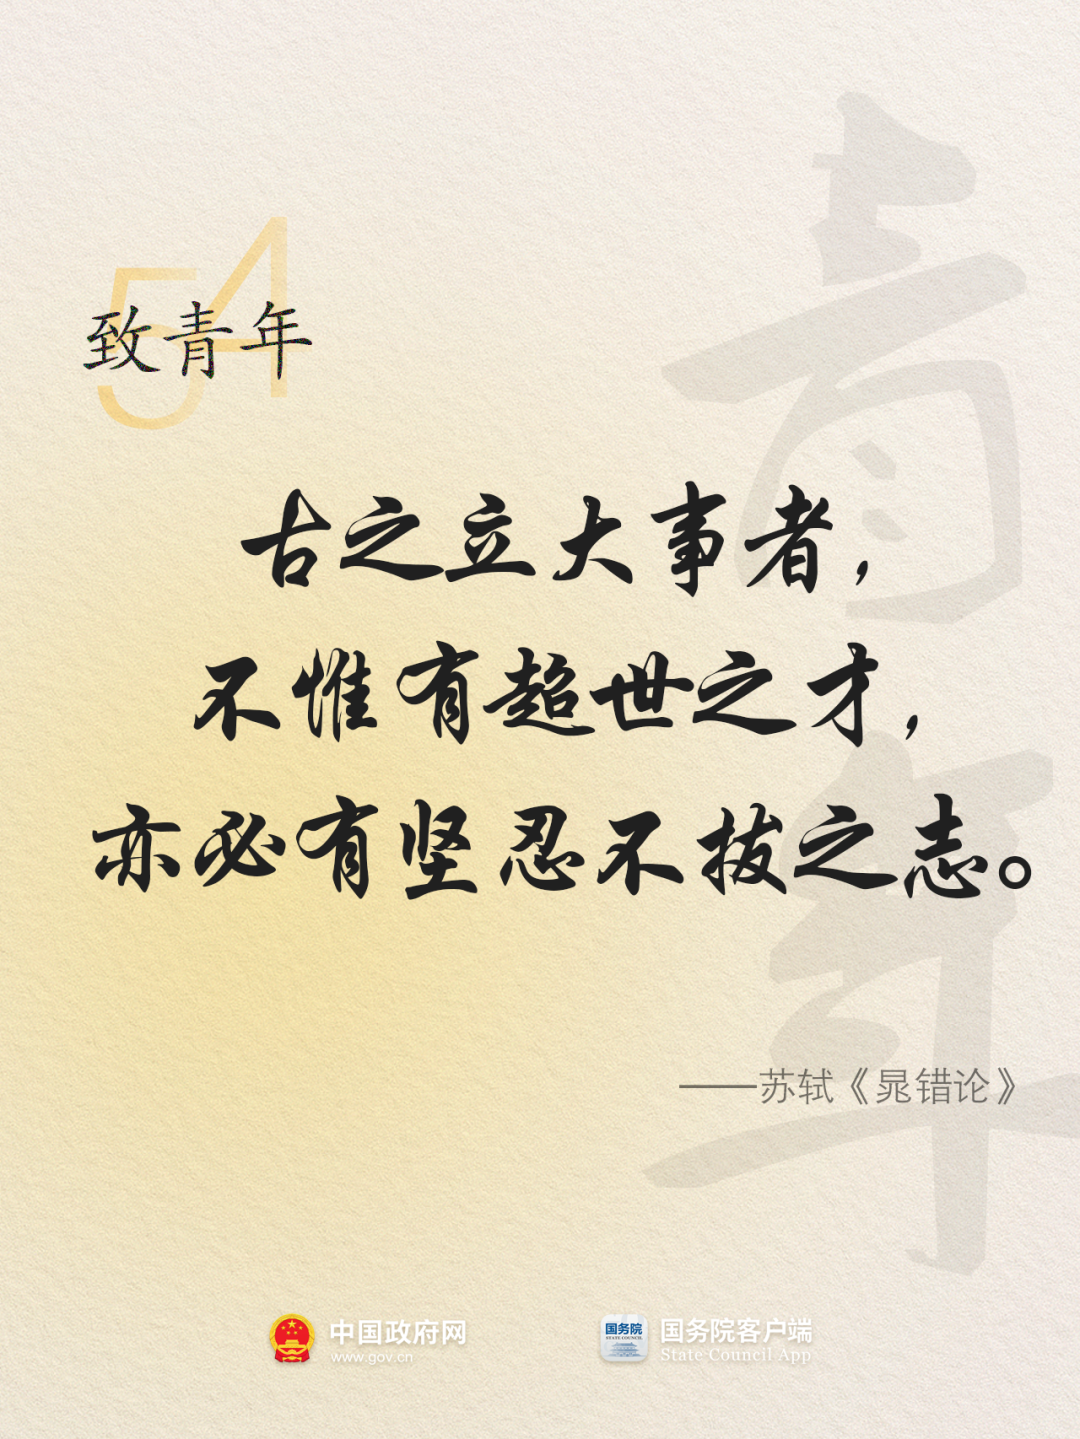 54
致青年
青年
古之立大事者，
不惟有超世之才，
亦必有坚忍不拔之志。
——苏轼《晁错论》
中国政府网
www.gov.cn
国务院
STATE COUNCIL
国务院客户端
State Council App